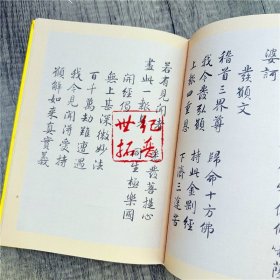 婆訶
發願文
稽首三界尊 歸命十方佛
我今發弘願 持此金剛經
上報四重恩 下濟三塗苦
若有見聞 發菩提心
盡此一報 生極樂國
開經偈
無上甚深微妙法
百千萬劫難遭遇
我今見聞得受持
願解如來真實義
世纪
拓普